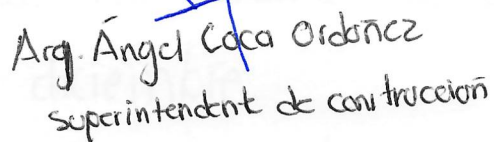 Arq. Ángel Coca Ordoñez
superintendent de contruccion